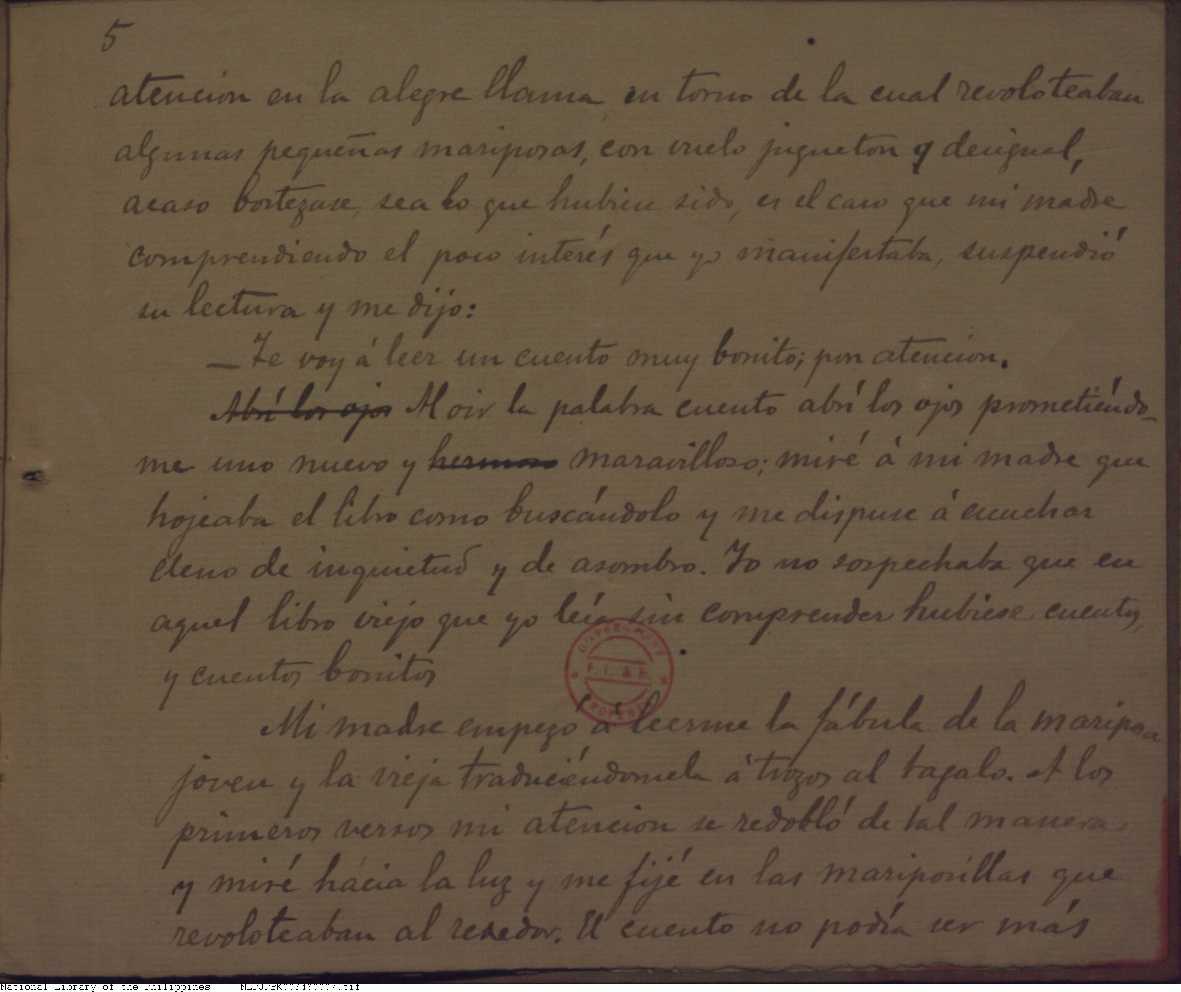 5
atencion en la alegre llama, en torno de la cual revoloteaban
algunas pequeñas mariposas, con vuelo jugueton y desigual,
acaso bostezase, sea lo que hubiese sido, es el caso que mi madre
comprendiendo el poco interés que yo manifestaba, suspendió
su lectura y me dijo:
—Te voy á leer un cuento muy bonito; pon atencion.
Abrí los ojos Al oir la palabra cuento abrí los ojos prometiéndo-
me uno nuevo y hermoso maravilloso; miré á mi madre que
hojeaba el libro como buscándolo y me dispuse á escuchar
lleno de inquietud y de asombro. Yo no sospechaba que en
aquel libro viejo que yo leía sin comprender hubiese cuentos,
y cuentos bonitos
Mi madre empezó á leerme la fábula de la mariposa
joven y la vieja traduciéndomela á trozos al tagalo. A los
primeros versos mi atencion se redobló de tal manera
y miré hácia la luz y me fijé en las mariposillas que
revoloteaban al rededor. El cuento no podía ser más
GOVERNMENT
PROPERTY
National Library of the Philippines